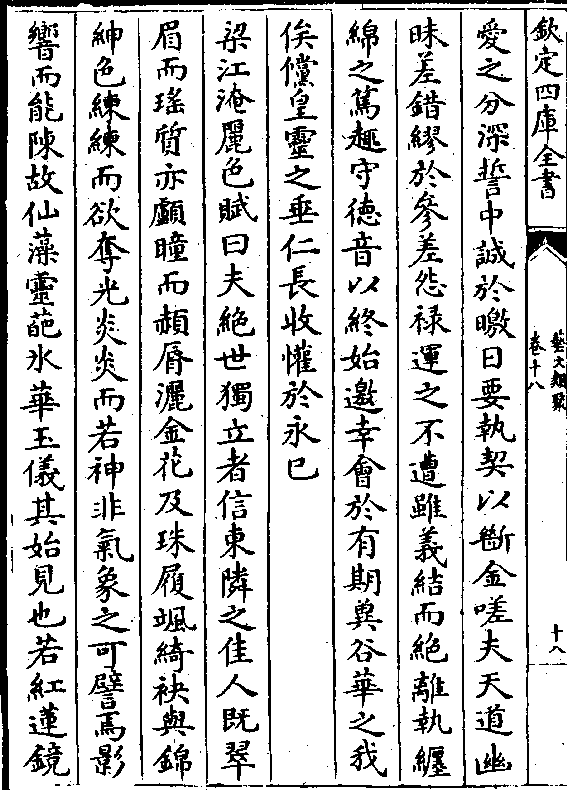 欽定四庫全書
藝文類聚
卷十八
十八
愛之分深誓中誠於曒日要執契以斷金嗟夫天道幽
昧差錯繆於參差怨祿運之不遭雖義結而絶離執纏
綿之篤趣守德音以終始邀幸會於有期兾谷華之我
俟儻皇靈之垂仁長收懽於永已
梁江淹麗色賦曰夫絶世獨立者信東隣之佳人既翠
眉而瑤質亦顱瞳而頳脣灑金花及珠履颯綺袂與錦
紳色練練而欲奪光炎炎而若神非氣象之可譬焉影
響而能陳故仙藻靈葩氷華玉儀其始見也若紅蓮鏡